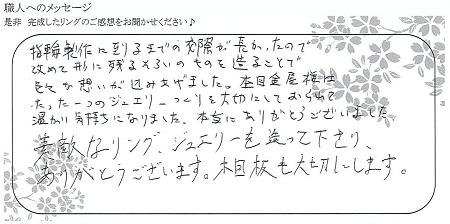 職人へのメッセージ
是非 完成したリングのご感想をお聞かせください♪
指輪製作に到るまでの交際が長かったので
改めて形に残るくらいのものを造ることで
色々な想いが込みあげました。本日金屋様は
たった一つのジュエリーつくりを大切にしておられて
温かい気持ちになりました。本当にありがとうございました
素敵なリング、ジュエリーを造って下さり、
ありがとうございます。木目板も大切にします。